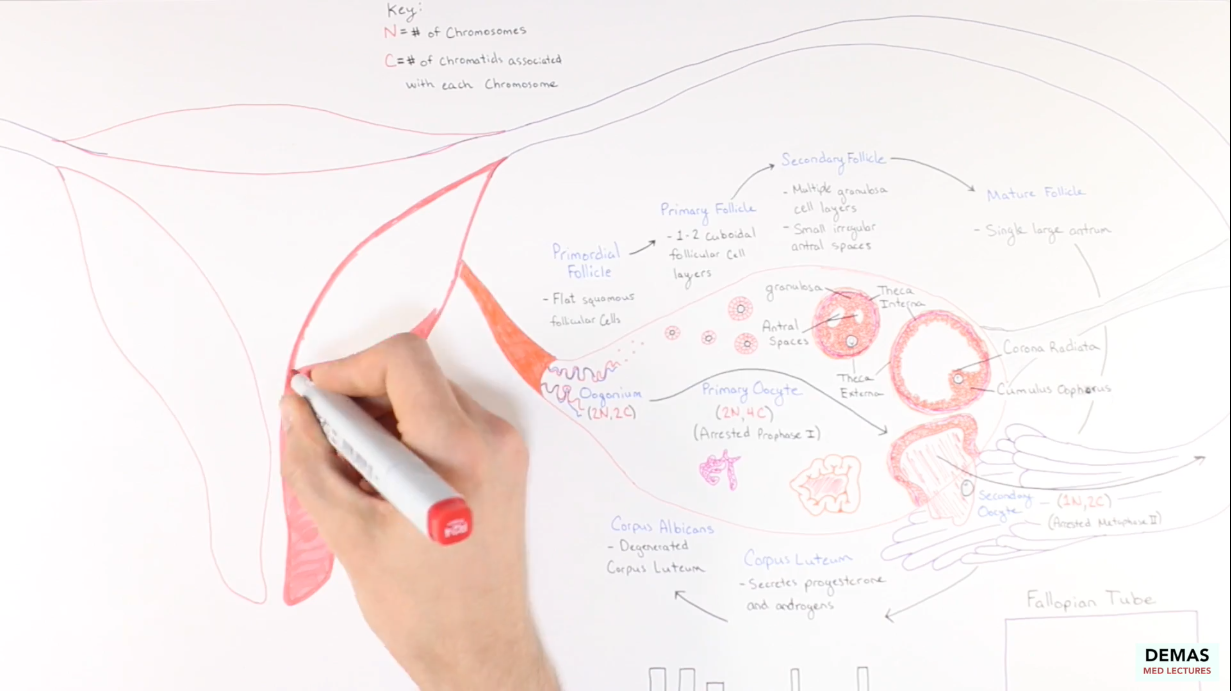 Key:
N = # of Chromosomes
C = # of chromatids associated
with each Chromosome
Secondary Follicle
- Multiple granulosa
cell layers
- Small irregular
antral spaces
Mature Follicle
- Single large antrum
Primary Follicle
- 1-2 cuboidal
follicular cell
layers
Primordial
Follicle
- Flat squamous
follicular cells
granulosa
Theca
Interna
Antral
Spaces
Corona Radiata
Theca
Externa
Cumulus Oophorus
Oogonium
(2N, 2C)
Primary Oocyte
(2N, 4C)
(Arrested Prophase I)
Secondary
Oocyte
(1N, 2C)
(Arrested Metaphase II)
Corpus Albicans
- Degenerated
Corpus Luteum
Corpus Luteum
- Secretes progesterone
and androgens
Fallopian Tube
DEMAS
MED LECTURES